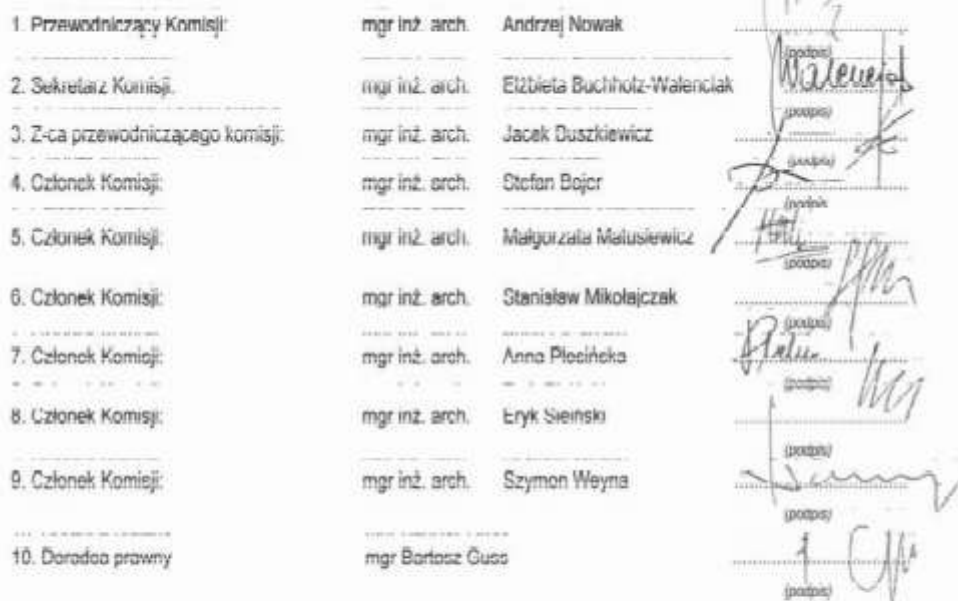 1. Przewodniczący Komisji: mgr inż. arch. Andrzej Nowak
(podpis)
2. Sekretarz Komisji: mgr inż. arch. Elżbieta Buchholz-Walenciak Walenciak
(podpis)
3. Z-ca przewodniczącego komisji: mgr inż. arch. Jacek Buszkiewicz
(podpis)
4. Członek Komisji: mgr inż. arch. Stefan Bajer
(podpis
5. Członek Komisji: mgr inż. arch. Małgorzata Matusiewicz
(podpis)
6. Członek Komisji: mgr inż. arch. Stanisław Mikołajczak
(podpis)
7. Członek Komisji: mgr inż. arch. Anna Plesińska
(podpis)
8. Członek Komisji: mgr inż. arch. Eryk Sieiński
(podpis)
9. Członek Komisji: mgr inż. arch. Szymon Weyna
(podpis)
10. Doradca prawny mgr Bartosz Guss
(podpis)